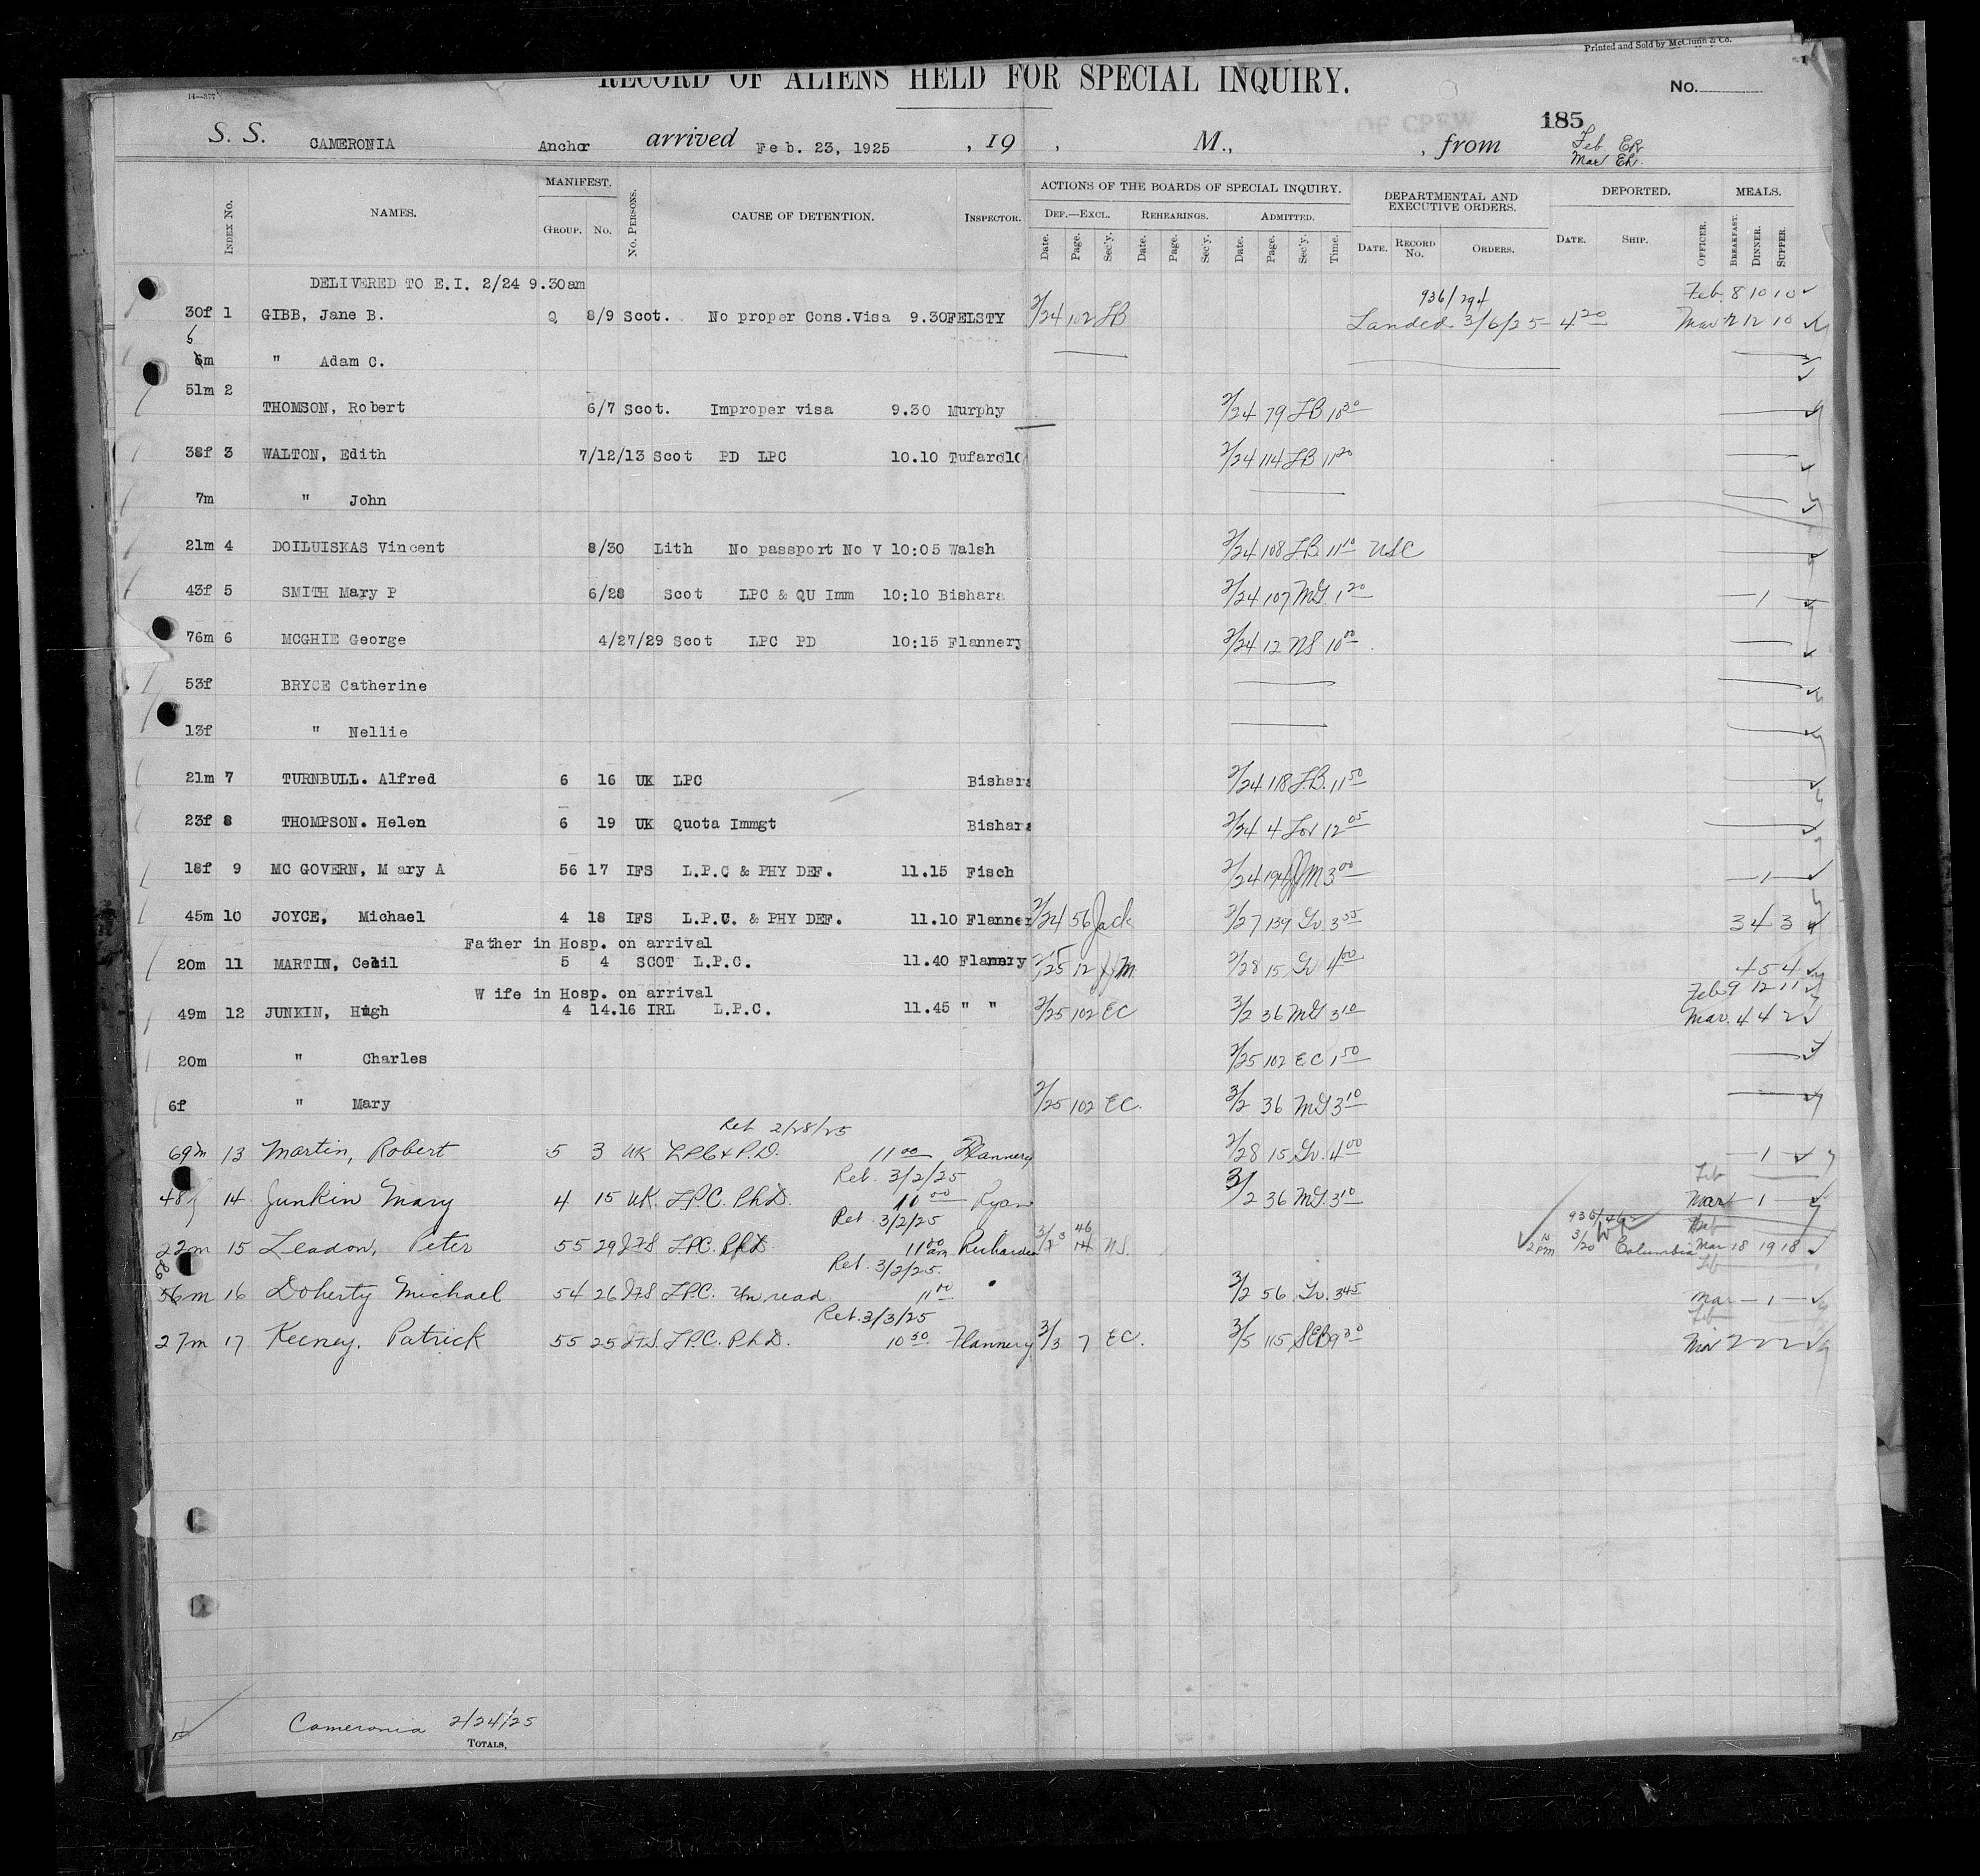 Printed and Sold by McClunn & Co.
14—377
RECORD OF ALIENS HELD FOR SPECIAL INQUIRY.
No.
185
S. S. CAMERONIA Anchor arrived Feb. 23, 1925 , 19 , M., , from
Feb. ER
Mar ER.
INDEX No. NAMES. MANIFEST. GROUP. No. No. PERSONS. CAUSE OF DETENTION. INSPECTOR. ACTIONS OF THE BOARDS OF SPECIAL INQUIRY. DEPARTMENTAL AND EXECUTIVE ORDERS. DEPORTED. MEALS.
DEF.—EXCL. REHEARINGS. ADMITTED.
Date. Page. Sec'y. Date. Page. Sec'y. Date. Page. Sec'y. Time. DATE. RECORD No. ORDERS. DATE. SHIP. OFFICER. BREAKFAST. DINNER. SUPPER.
DELIVERED TO E.I. 2/24 9.30am
936/294 Feb. 8 10 10
30f 1 GIBB, Jane B. Q 8/9 Scot. No proper Cons.Visa 9.30 FELSTY 2/24 102 LB Landed 3/6/25 - 4 20 Mar 12 12 10
6m " Adam C.
51m 2
THOMSON, Robert 6/7 Scot. Improper visa 9.30 Murphy 2/24 79 LB 10 30
38f 3 WALTON, Edith 7/12/13 Scot PD LPC 10.10 2/24 114 LB 11 20
7m " John
21m 4 DOILUISKAS Vincent 8/30 Lith No passport No V 10:05 Walsh 2/24 108 LB 11 10 USC
43f 5 SMITH Mary P 6/28 Scot LPC & QU Imm 10:10 Bishara 2/24 107 MG 1 20 — 1 —
76m 6 MCGHIE George 4/27/29 Scot LPC PD 10:15 Flannery 2/24 12 NS 10 00
53f BRYCE Catherine
13f " Nellie
21m 7 TURNBULL. Alfred 6 16 UK LPC Bishara 2/24 118 L.B. 11 50
23f 8 THOMPSON. Helen 6 19 UK Quota Immgt Bishara 2/24 4 Lov 12 05
18f 9 MC GOVERN, M ary A 56 17 IFS L.P.C & PHY DEF. 11.15 Fisch 2/24 194 JJM 3 00 — 1 —
45m 10 JOYCE, Michael 4 18 IFS L.P.C. & PHY DEF. 11.10 Flanner 2/24 56 Jack 2/27 139 Gv. 3 55 3 4 3
Father in Hosp. on arrival
20m 11 MARTIN, Cecil 5 4 SCOT L.P.C. 11.40 Flannery 2/25 12 JJM 2/28 15 Gv 4 00 4 5 4
W ife in Hosp. on arrival Feb 9 12 11
49m 12 JUNKIN, Hugh 4 14.16 IRL L.P.C. 11.45 " " 2/25 102 EC 3/2 36 MG 3 10 Mar. 4 4 2
20m " Charles 2/25 102 EC 1 50
6f " Mary 2/25 102 EC. 3/2 36 MG 3 10
Ret 2/28/25
69m 13 Martin, Robert 5 3 UK LPC & P.D. 11 00 Flannery 2/28 15 Gv. 4 00 — 1 —
Ret. 3/2/25 Feb
48f 14 Junkin Mary 4 15 UK. L.P.C. Ph.D. 10 00 Ryan 3/2 36 MG. 3 10 Mar — 1 —
Ret. 3/2/25
22m 15 Leadon, Peter 55 29 IFS L.P.C. Ph.D. 11 00 am 3/3 NS. 2 pm 3/20 Columbia Mar 18 19 18
Ret. 3/2/25. Feb
56m 16 Doherty Michael 54 26 IFS L.P.C. Un read 11 00 3/2 56 Gv. 3 45 Mar — 1 —
Ret. 3/3/25 Feb
27m 17 Keeney, Patrick 55 25 IFS. L.P.C. Ph.D. 10 50 Flannery 3/3 7 EC. 3/5 115 SEB 9 30 Mar 2 2 2
Cameronia 2/24/25
TOTALS,